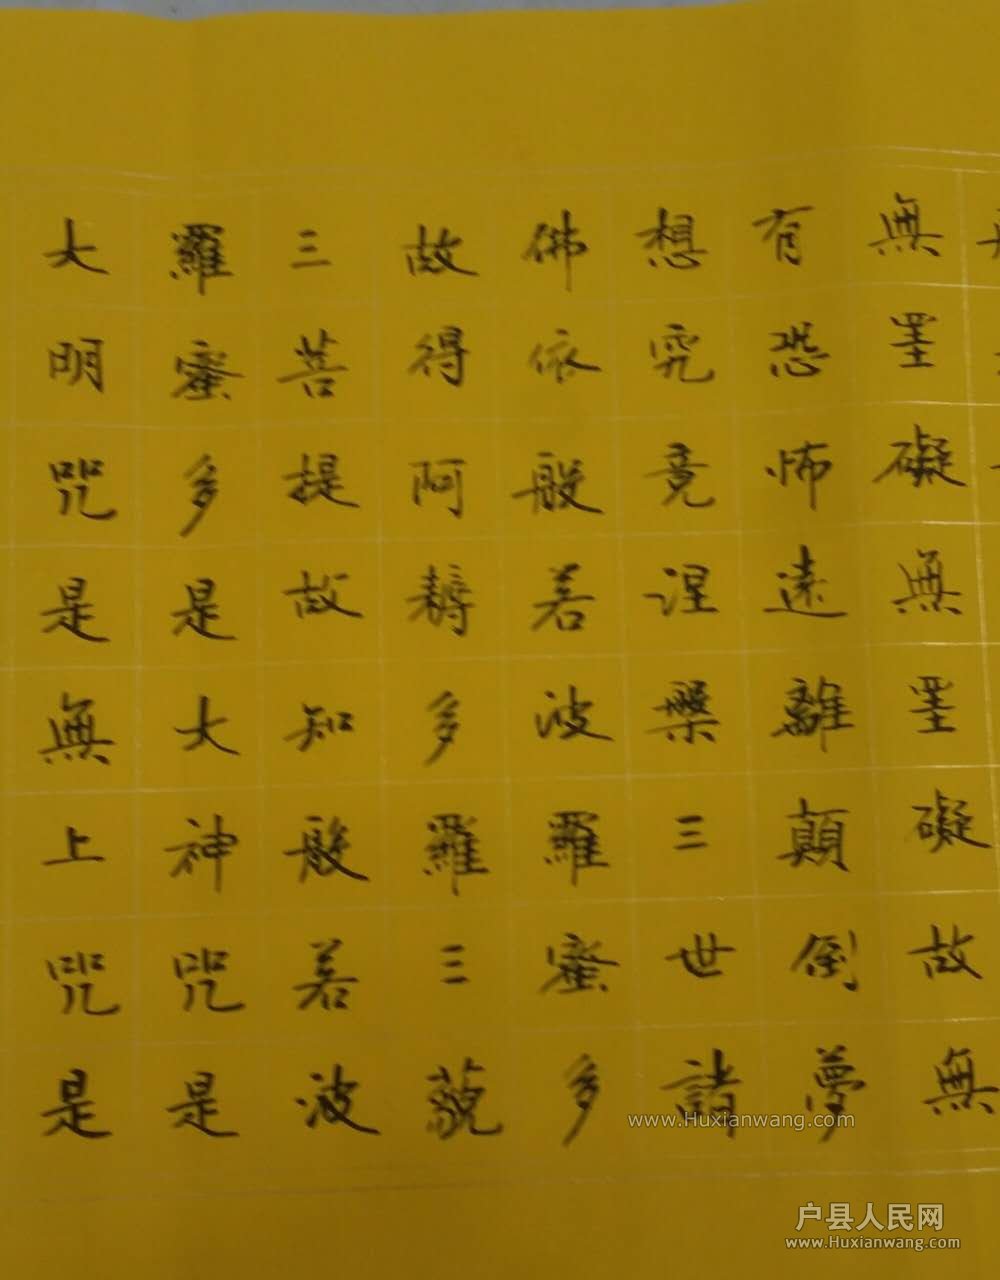 無罣礙無罣礙故無
有恐怖遠離顛倒夢
想究竟涅槃三世諸
佛依般若波羅蜜多
故得阿耨多羅三藐
三菩提故知般若波
羅蜜多是大神咒是
大明咒是無上咒是
www.Huxianwang.com
户县人民网
www.Huxianwang.com